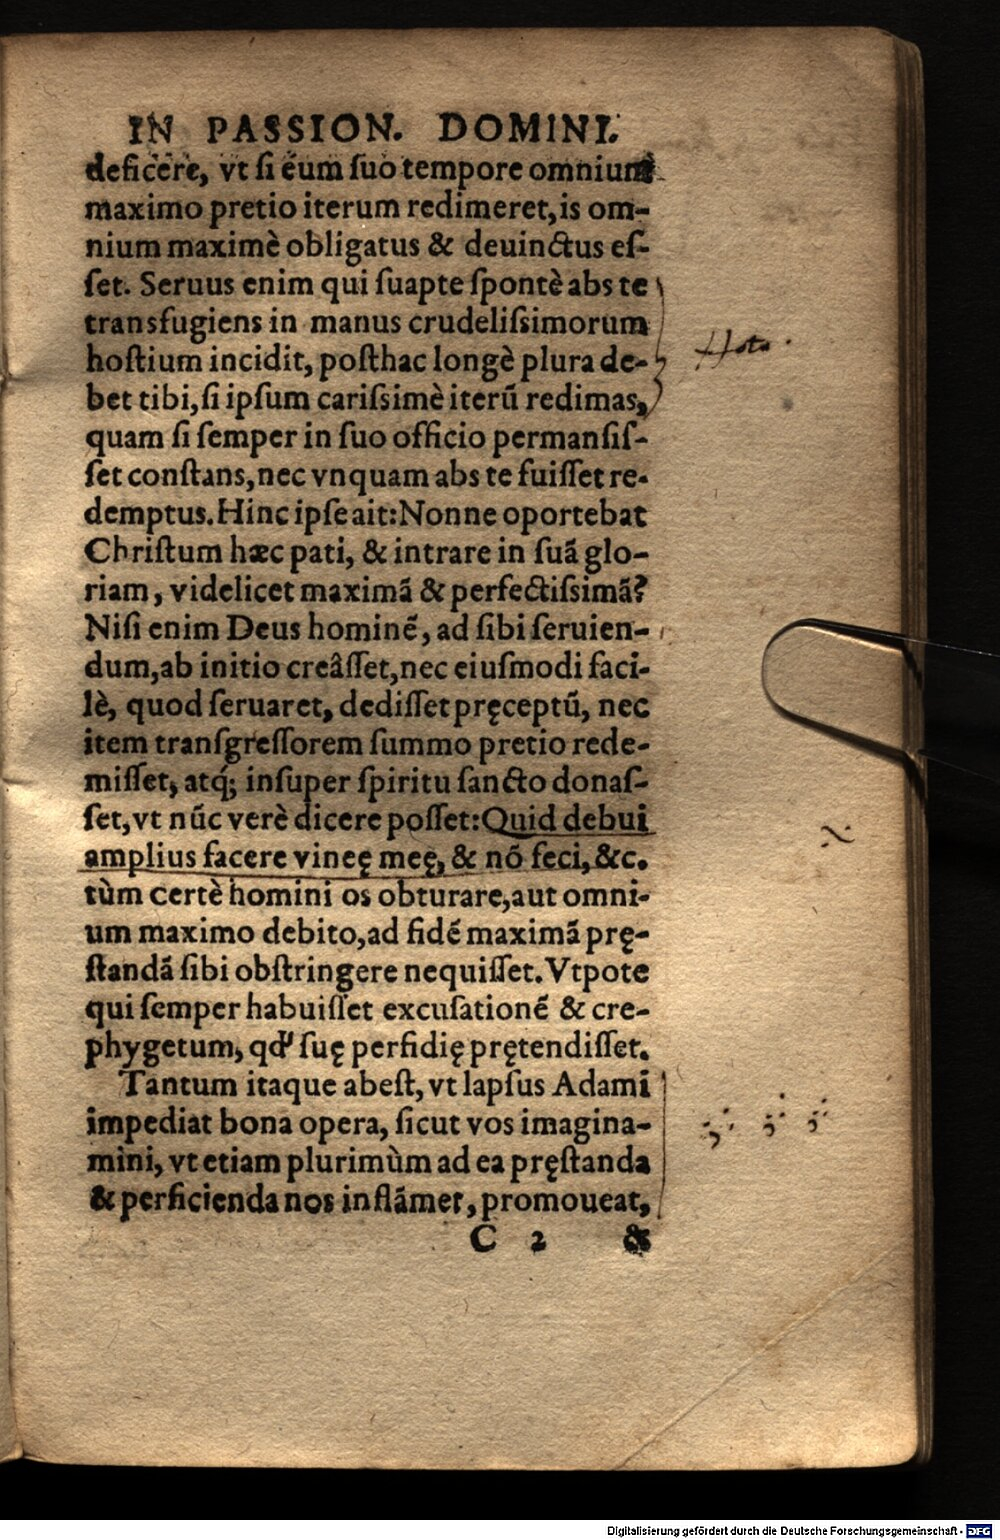 IN PASSION. DOMINI.
deficere, vt ſi eum ſuo tempore omnium
maximo pretio iterum redimeret, is om-
nium maximè obligatus & deuinctus eſ-
ſet. Seruus enim qui ſuapte ſpontè abs te
transfugiens in manus crudeliſsimorum
hoſtium incidit, poſthac longè plura de-
bet tibi, ſi ipſum cariſsimè iterũ redimas,
quam ſi ſemper in ſuo officio permanſiſ-
ſet conſtans, nec vnquam abs te fuiſſet re-
demptus. Hinc ipſe ait: Nonne oportebat
Chriſtum hæc pati, & intrare in ſuã glo-
riam, videlicet maximã & perfectiſsimã?
Niſi enim Deus hominẽ, ad ſibi ſeruien-
dum, ab initio creâſſet, nec eiuſmodi faci-
lè, quod ſeruaret, dediſſet pręceptũ, nec
item tranſgreſſorem ſummo pretio rede-
miſſet, atq́; inſuper ſpiritu ſancto donaſ-
ſet, vt nũc verè dicere poſſet: Quid debui
amplius facere vineę meę, & nõ feci, &c.
tùm certè homini os obturare, aut omni-
um maximo debito, ad fidẽ maximã prę-
ſtandã ſibi obſtringere nequiſſet. Vtpote
qui ſemper habuiſſet excuſationẽ & cre-
phygetum, qd' ſuę perfidię prętendiſſet.
Tantum itaque abeſt, vt lapſus Adami
impediat bona opera, ſicut vos imagina-
mini, vt etiam plurimùm ad ea pręſtanda
& perficienda nos inflãmet, promoueat,
C 2 &
Digitalisierung gefördert durch die Deutsche Forschungsgemeinschaft - DFG